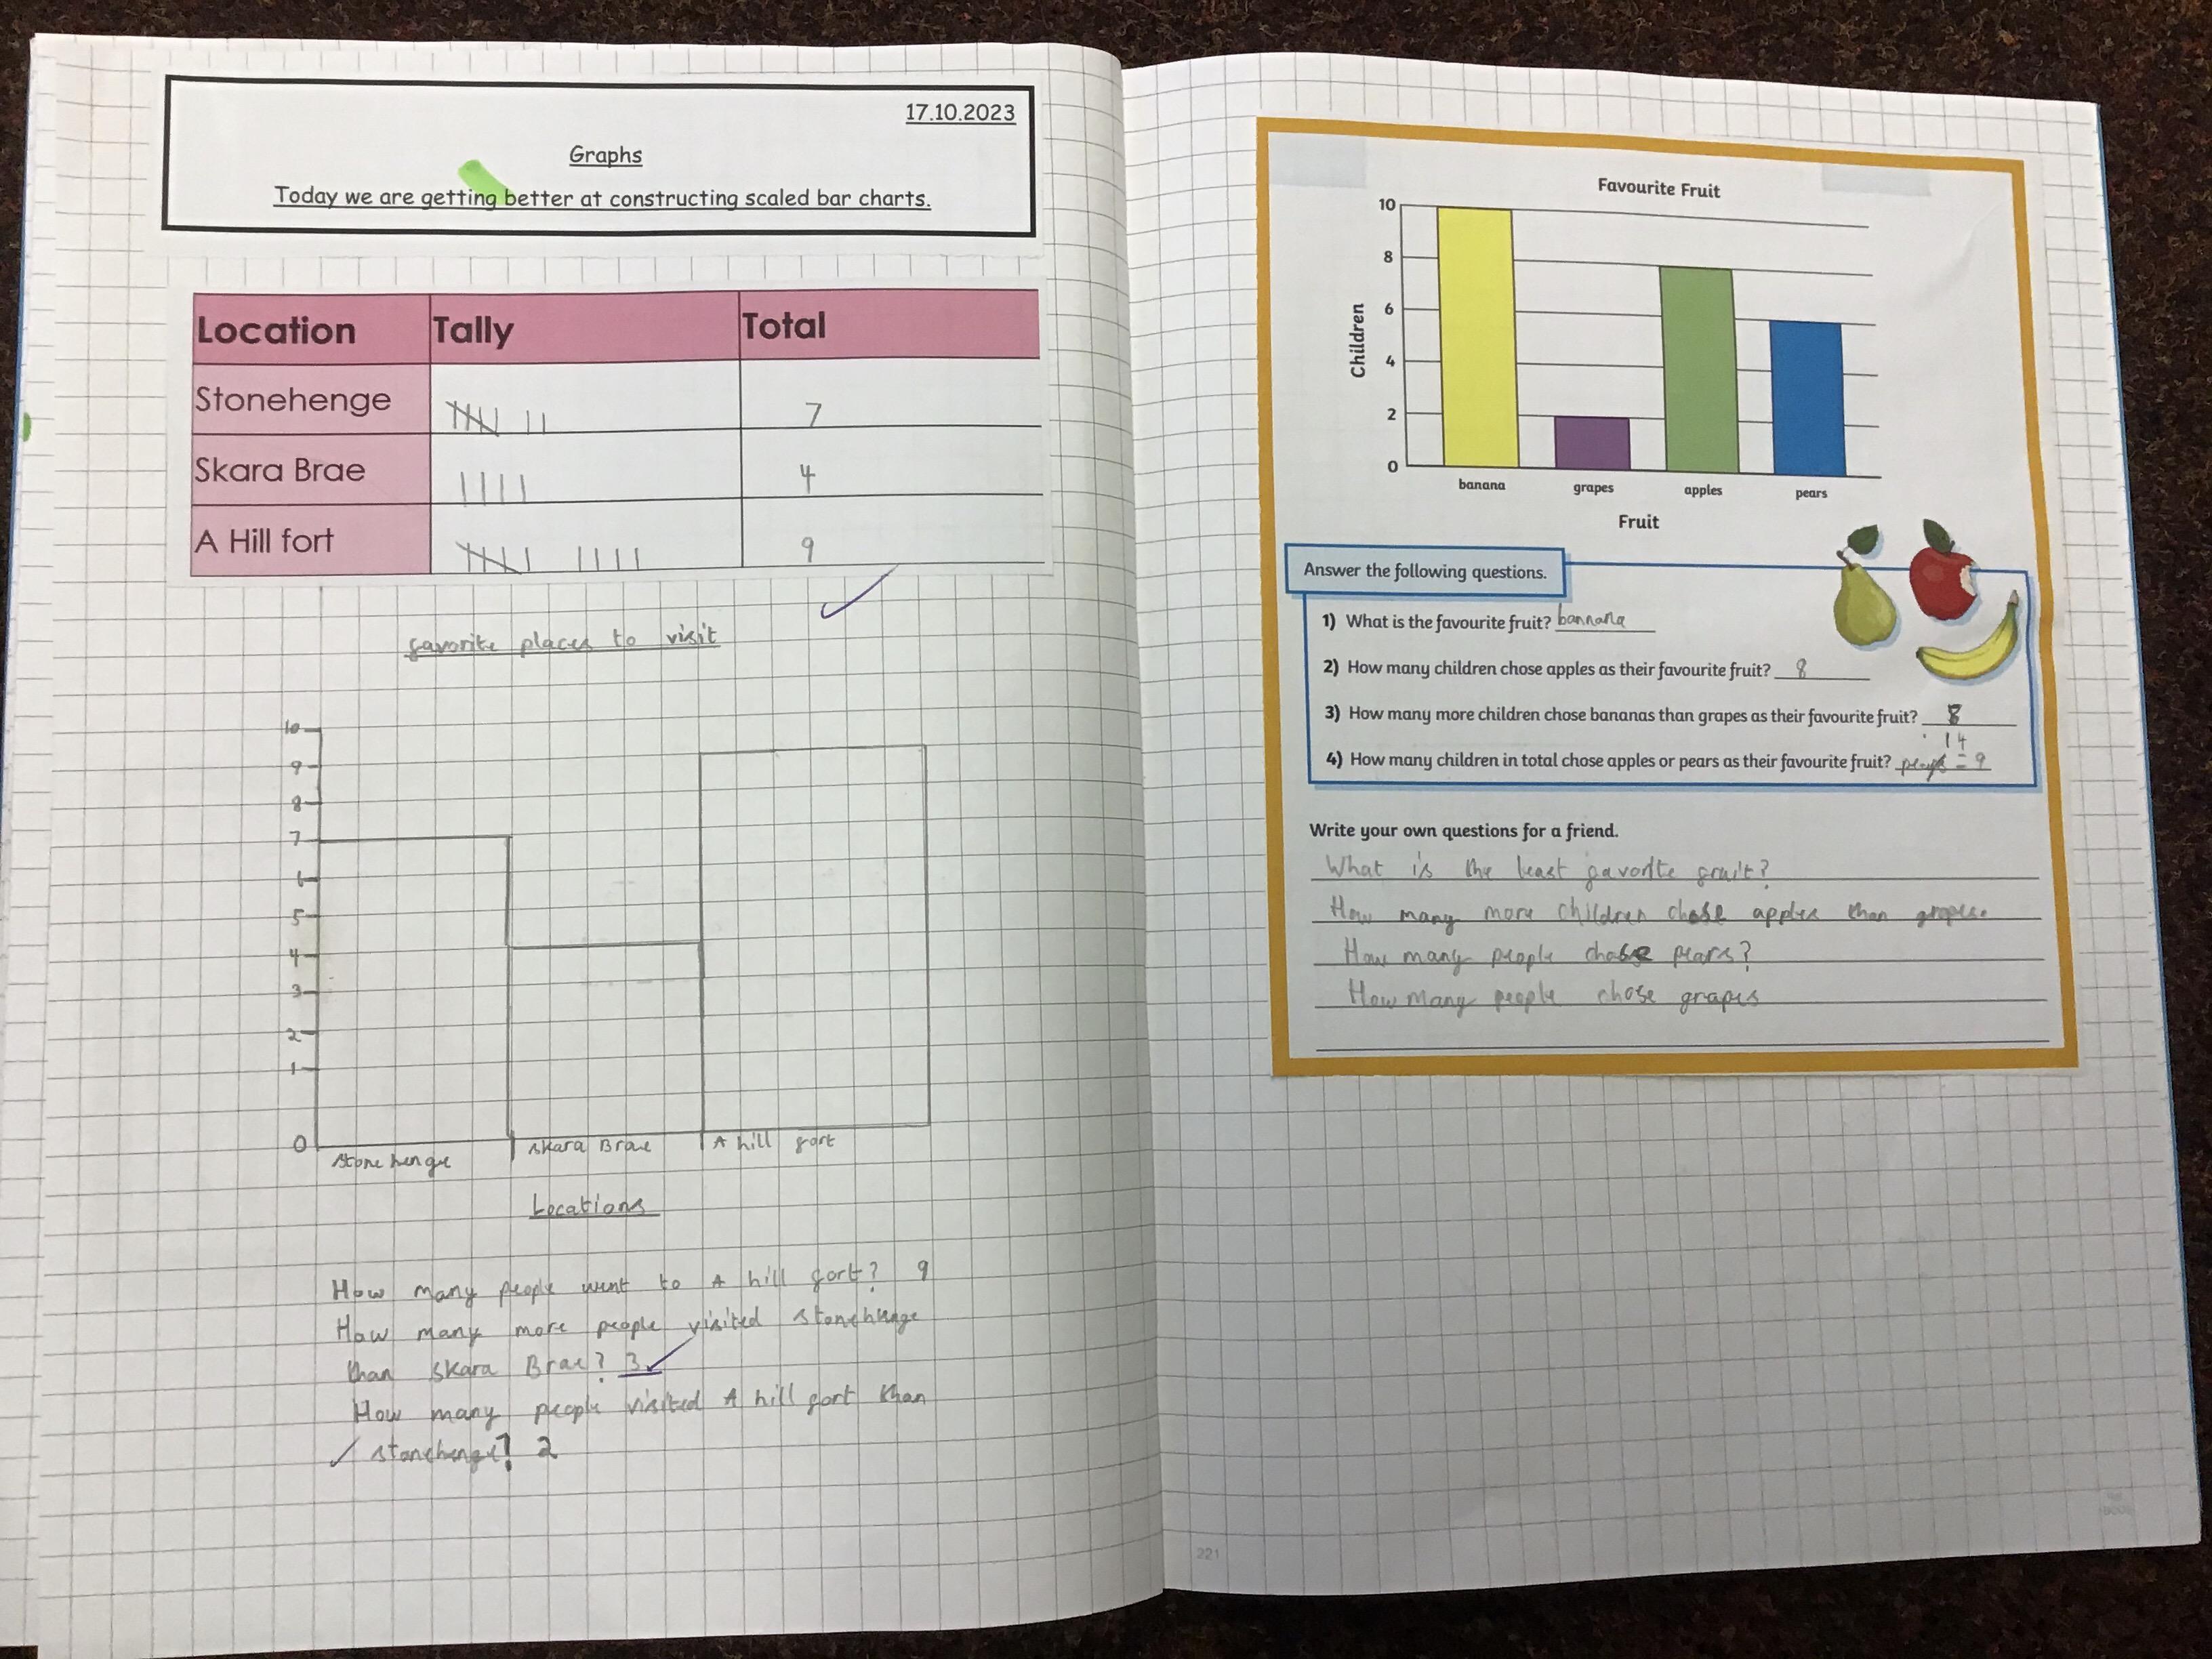 17.10.2023
Graphs
Today we are getting better at constructing scaled bar charts.
Location Tally Total
Stonehenge 7
Skara Brae 4
A Hill fort 9
favorite places to visit
10
9
8
7
6
5
4
3
2
1
0
stone henge skara Brae A hill fort
Locations
How many people went to A hill fort? 9
How many more people visited stonehenge
than skara Brae? 3
How many people visited A hill fort than
stonehenge? 2
Favourite Fruit
10
8
6
4
2
0
Children
banana grapes apples pears
Fruit
Answer the following questions.
1) What is the favourite fruit? bannana
2) How many children chose apples as their favourite fruit? 8
3) How many more children chose bananas than grapes as their favourite fruit? 8
14
4) How many children in total chose apples or pears as their favourite fruit? = 9
Write your own questions for a friend.
What is the least favorite fruit?
How many more children chose apples than grapes.
How many people chose pears?
How many people chose grapes
221